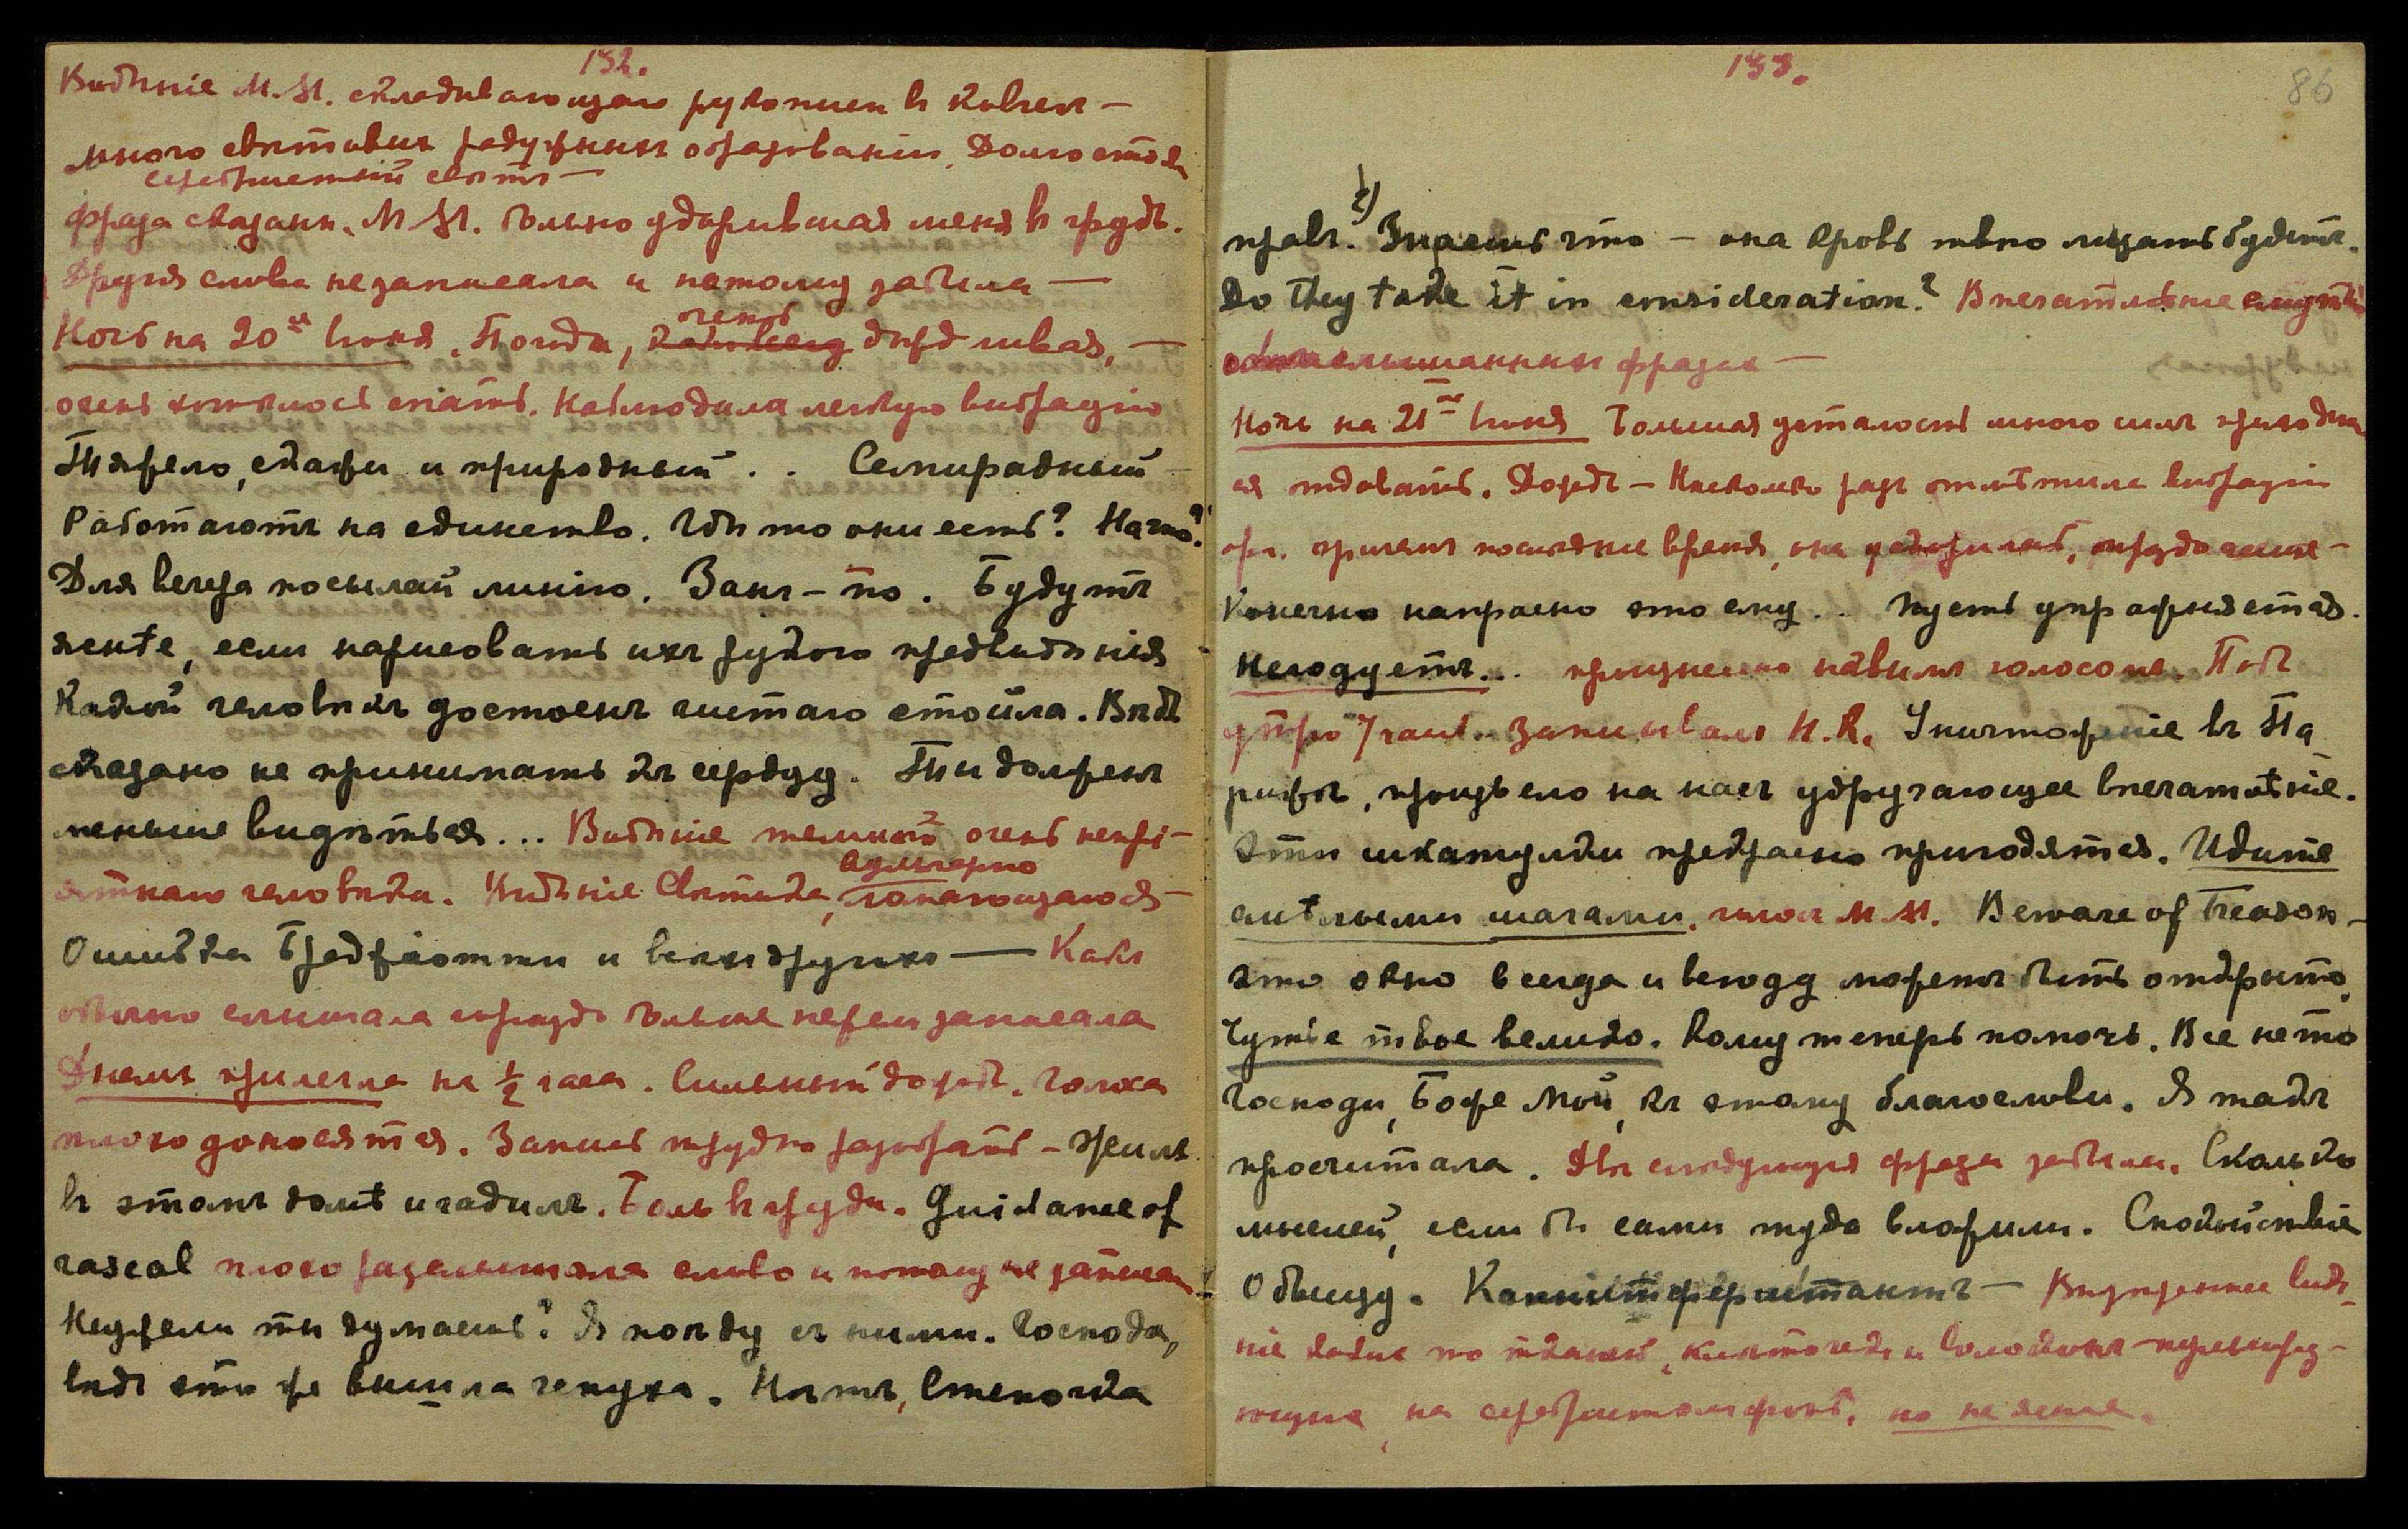 152.
Видѣніе М.М. складывающаго рукописи въ Ковчегъ –
много свѣтовыхъ радужныхъ образованій. Долго стоял
серебристый свѣтъ –
фраза сказанн. М.М. больно ударившая меня въ грудь.
Другія слова не записала и потому забыла –
Ночь на 20ое Іюня. Погода, очень дождливая, –
очень хотѣлось спать. Наблюдала легкую вибрацію
Тяжело, скажи и природный . . Семирадный
Работаютъ на единство. Гдѣ то они есть? На что?
Для вечера посылай линію. Занято. Будутъ
яснѣе, если нарисовать ихъ рукою предвидѣнія
Какой человѣкъ достоенъ чистаго стойла. Вѣдь
сказано не принимать къ сердцу. Ты долженъ
меньше видѣться... Видѣніе темнаго очень непрі-
ятнаго человѣка. Видѣніе Святика,
Ошибка и всѣхъ другихъ — Какъ
обычно слышала гораздо больше нежели записала
Днемъ прилегла на ½ часа. Сильный дождь. Голоса
плохо доносятся. Запись трудно разобрать – Жилъ
въ этомъ домѣ и гадилъ. Боль въ груди. Guidance of
rascal плохо разслышала слово и потому не записал
Неужели ты думаешь? Я пойду съ ними. Господа,
вѣдь это же вышла чепуха. Нѣтъ, Степочка
153.
86
?)
правъ. Знаешь что – она кровь твою лизать будетъ.
Do they take it in consideration? Впечатлѣніе
фразахъ –
Ночь на 21ое Іюня Большая усталость много силъ приходит
ся отдавать. Дождь – Нѣсколько разъ отмѣтила вибрацію
орг. причемъ послѣднее время, она, гораздо чаще –
Конечно напрасно это ему.. Пусть упражняется.
Негодуетъ... произнесено новымъ голосомъ. Подъ
утро 7 часовъ записывалъ Н.К. Уничтоженіе въ Па
рижѣ, произвело на насъ удручающее впечатлѣніе.
Эти шкатулки прекрасно пригодятся. Идите
смѣлыми шагами. голосъ М.М. Beware of Treason –
это окно всегда и всюду можетъ быть открыто.
Чутье твое велико. Кому теперь помочь. Все не то
Господи, Боже Мой, къ этому благослови. Я такъ
просчитала. Двѣ слѣдующія фразы забыла. Сколько
мыслей, если бы сами туда вложили. Спокойствіе
Обыщу. – Внутреннее видѣ
ніе какие то тканей, и
ющия, на серебристомъ фонѣ, но не ясные.